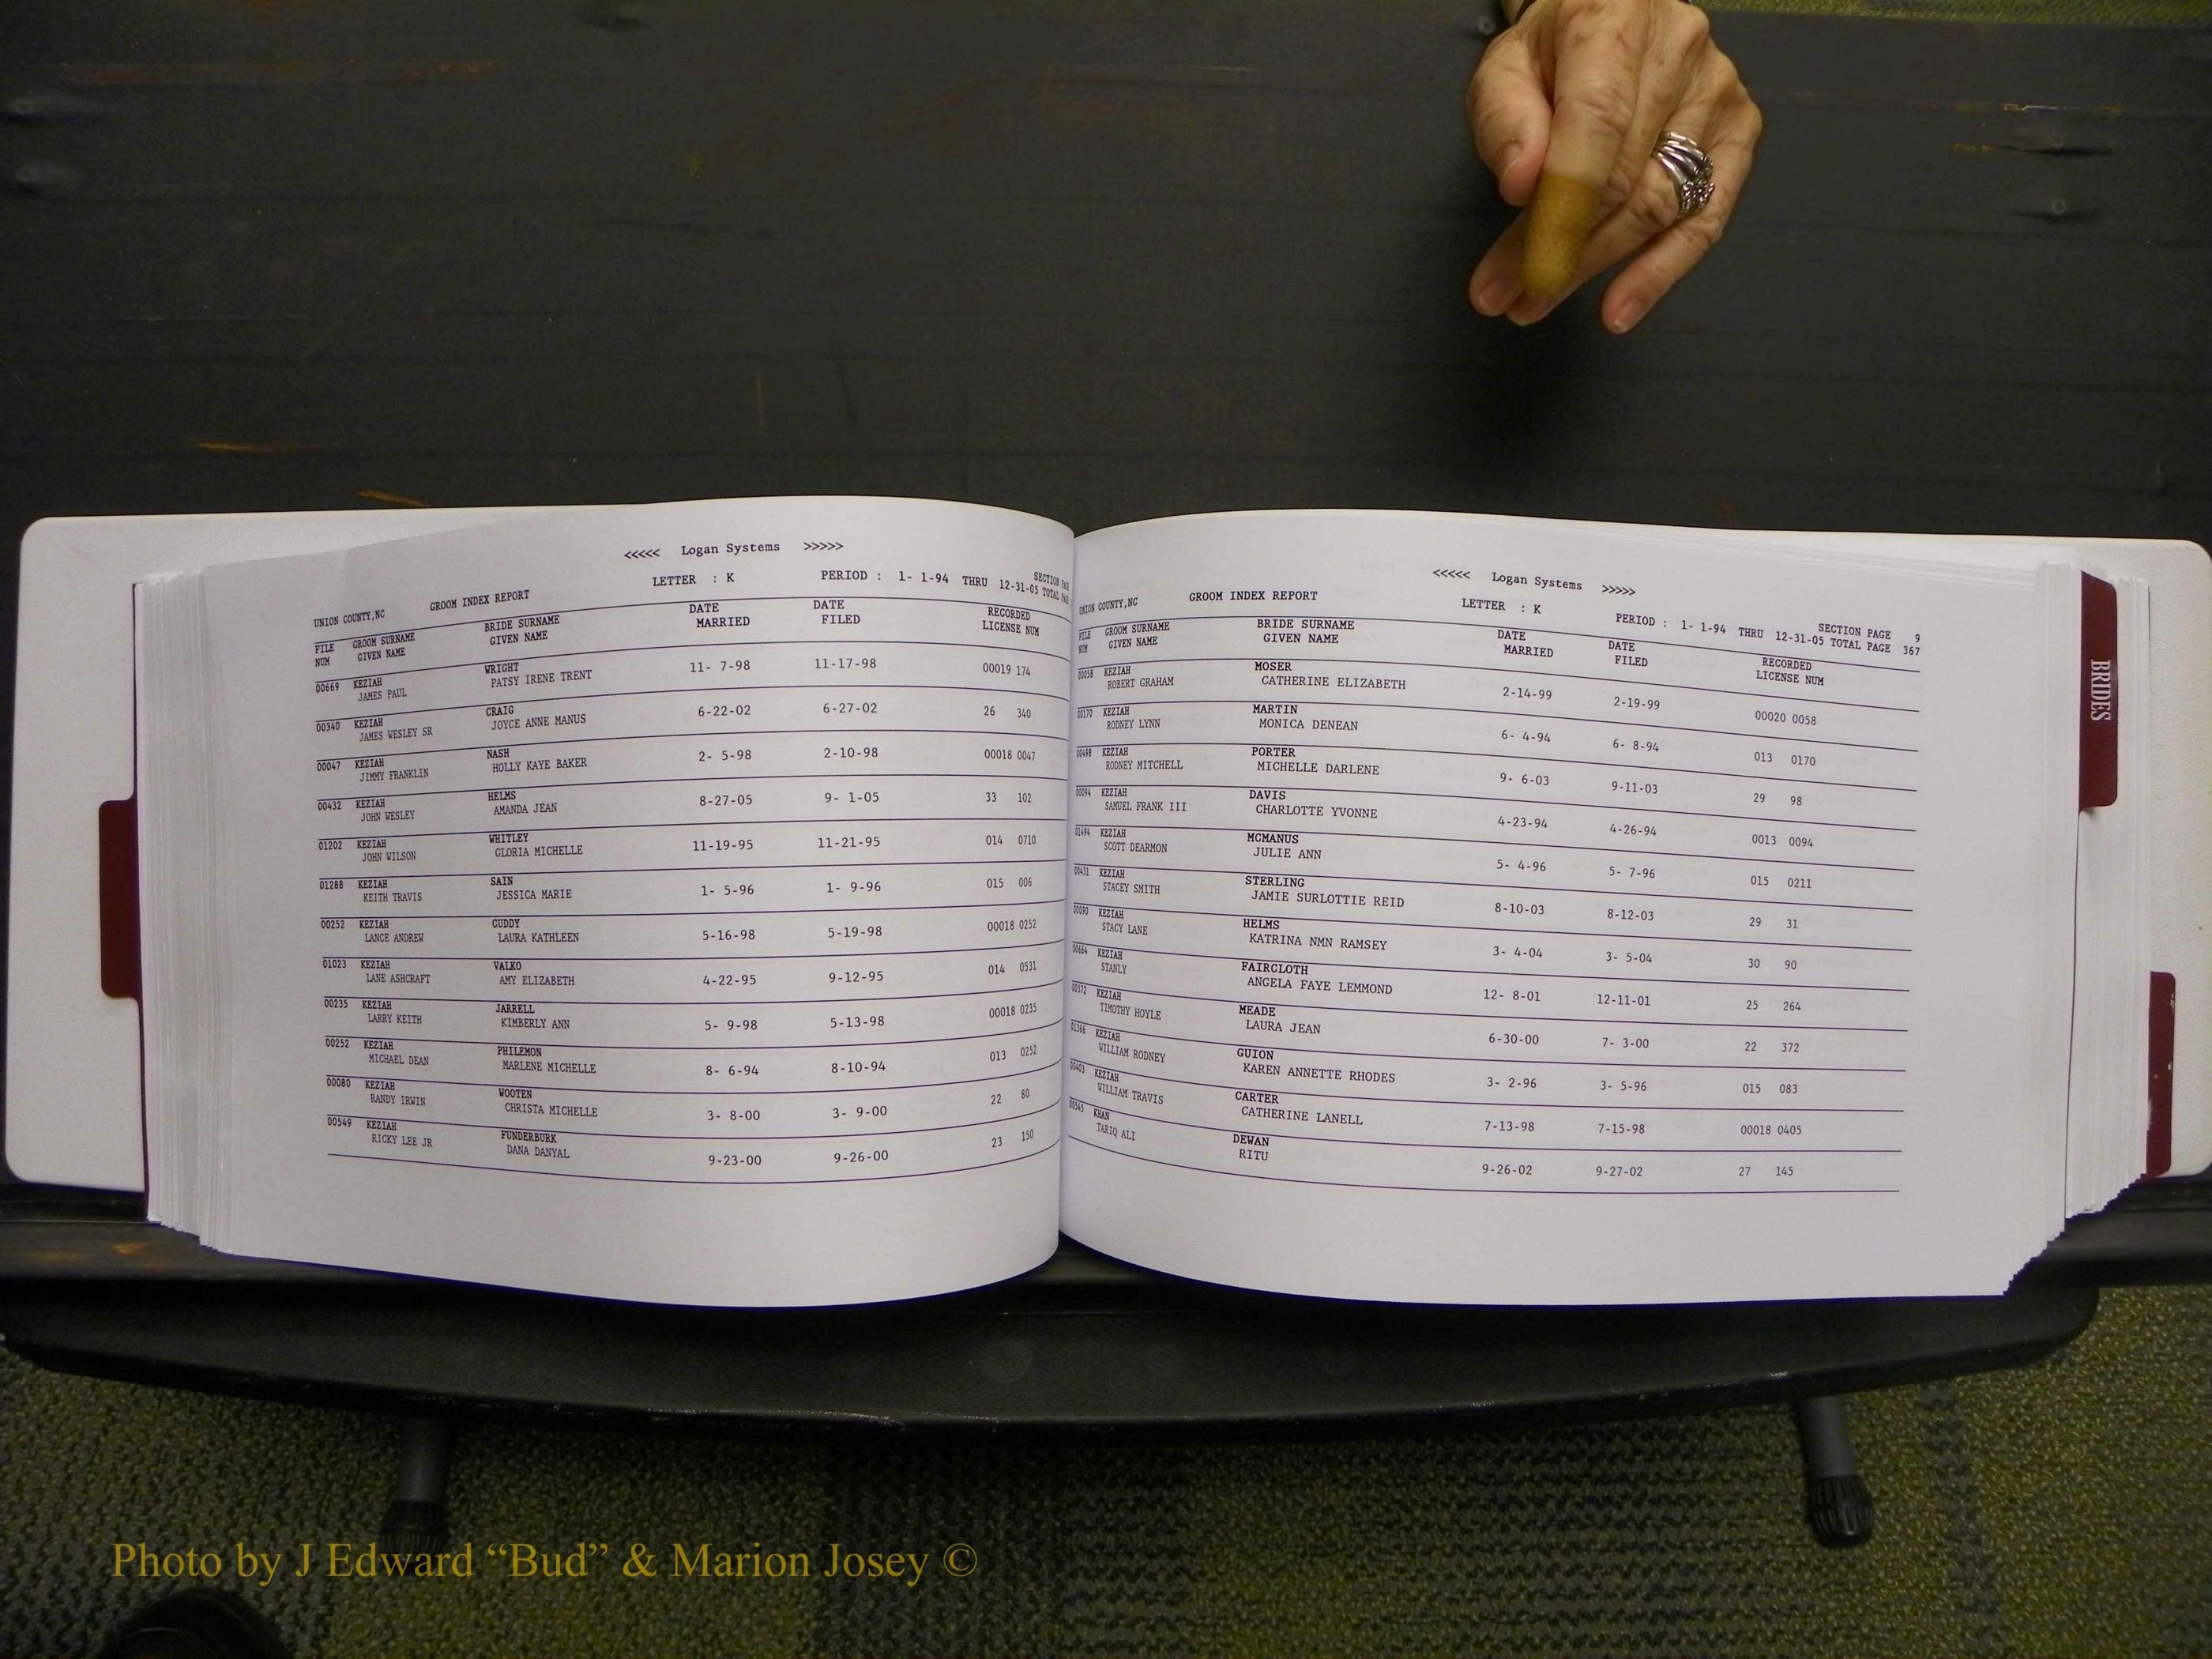 <<<<< Logan Systems >>>>>
UNION COUNTY,NC GROOM INDEX REPORT LETTER : K PERIOD : 1- 1-94 THRU 12-31-05 TOTAL
SECTION
FILE GROOM SURNAME BRIDE SURNAME DATE DATE RECORDED
NUM GIVEN NAME GIVEN NAME MARRIED FILED LICENSE NUM
00669 KEZIAH WRIGHT 11- 7-98 11-17-98 00019 174
JAMES PAUL PATSY IRENE TRENT
00340 KEZIAH CRAIG 6-22-02 6-27-02 26 340
JAMES WESLEY SR JOYCE ANNE MANUS
00047 KEZIAH NASH 2- 5-98 2-10-98 00018 0047
JIMMY FRANKLIN HOLLY KAYE BAKER
00432 KEZIAH HELMS 8-27-05 9- 1-05 33 102
JOHN WESLEY AMANDA JEAN
01202 KEZIAH WHITLEY 11-19-95 11-21-95 014 0710
JOHN WILSON GLORIA MICHELLE
01288 KEZIAH SAIN 1- 5-96 1- 9-96 015 006
KEITH TRAVIS JESSICA MARIE
00252 KEZIAH CUDDY 5-16-98 5-19-98 00018 0252
LANCE ANDREW LAURA KATHLEEN
01023 KEZIAH VALKO 4-22-95 9-12-95 014 0531
LANE ASHCRAFT AMY ELIZABETH
00235 KEZIAH JARRELL 5- 9-98 5-13-98 00018 0235
LARRY KEITH KIMBERLY ANN
00252 KEZIAH PHILEMON 8- 6-94 8-10-94 013 0252
MICHAEL DEAN MARLENE MICHELLE
00080 KEZIAH WOOTEN 3- 8-00 3- 9-00 22 80
RANDY IRWIN CHRISTA MICHELLE
00549 KEZIAH FUNDERBURK 9-23-00 9-26-00 23 150
RICKY LEE JR DANA DANYAL
<<<<< Logan Systems >>>>>
UNION COUNTY,NC GROOM INDEX REPORT LETTER : K PERIOD : 1- 1-94 THRU 12-31-05 TOTAL PAGE 367
SECTION PAGE 9
FILE GROOM SURNAME BRIDE SURNAME DATE DATE RECORDED
NUM GIVEN NAME GIVEN NAME MARRIED FILED LICENSE NUM
00058 KEZIAH MOSER 2-14-99 2-19-99 00020 0058
ROBERT GRAHAM CATHERINE ELIZABETH
00170 KEZIAH MARTIN 6- 4-94 6- 8-94 013 0170
RODNEY LYNN MONICA DENEAN
00498 KEZIAH PORTER 9- 6-03 9-11-03 29 98
RODNEY MITCHELL MICHELLE DARLENE
00094 KEZIAH DAVIS 4-23-94 4-26-94 0013 0094
SAMUEL FRANK III CHARLOTTE YVONNE
01494 KEZIAH MCMANUS 5- 4-96 5- 7-96 015 0211
SCOTT DEARMON JULIE ANN
00431 KEZIAH STERLING 8-10-03 8-12-03 29 31
STACEY SMITH JAMIE SURLOTTIE REID
00090 KEZIAH HELMS 3- 4-04 3- 5-04 30 90
STACY LANE KATRINA NMN RAMSEY
00664 KEZIAH FAIRCLOTH 12- 8-01 12-11-01 25 264
STANLY ANGELA FAYE LEMMOND
00372 KEZIAH MEADE 6-30-00 7- 3-00 22 372
TIMOTHY HOYLE LAURA JEAN
01366 KEZIAH GUION 3- 2-96 3- 5-96 015 083
WILLIAM RODNEY KAREN ANNETTE RHODES
KEZIAH CARTER 7-13-98 7-15-98 00018 0405
WILLIAM TRAVIS CATHERINE LANELL
00545 KHAN DEWAN 9-26-02 9-27-02 27 145
TARIQ ALI RITU
BRIDES
Photo by J Edward “Bud” & Marion Josey ©